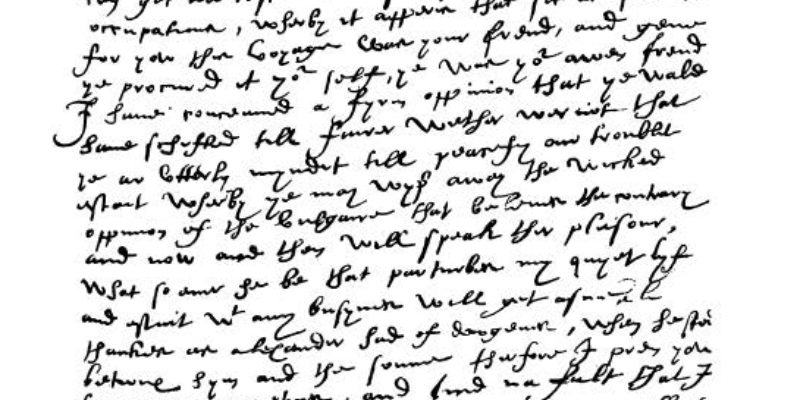 occupatione, wherby it apperis that
for you this voyage was your frend, and geue
ye procured it yor self, ye was yor awen frend
I haue conceaued a fyrm oppinion that ye wald
haue schifted till fairer wether wer not that
ye ar vtterly myndit till pacefy our troublit
estait wherby ye may wyp away the wicked
oppinion of the vulgaire that beleuis the contrary
and now and then will speak ther plesour,
What so euer he be that parturbis my quyet lyf
and estait wt any busynes will get
thankis as alexander had of deogenes, when he
betwene hym and the sonne therfore I prey you
and find na fault that I